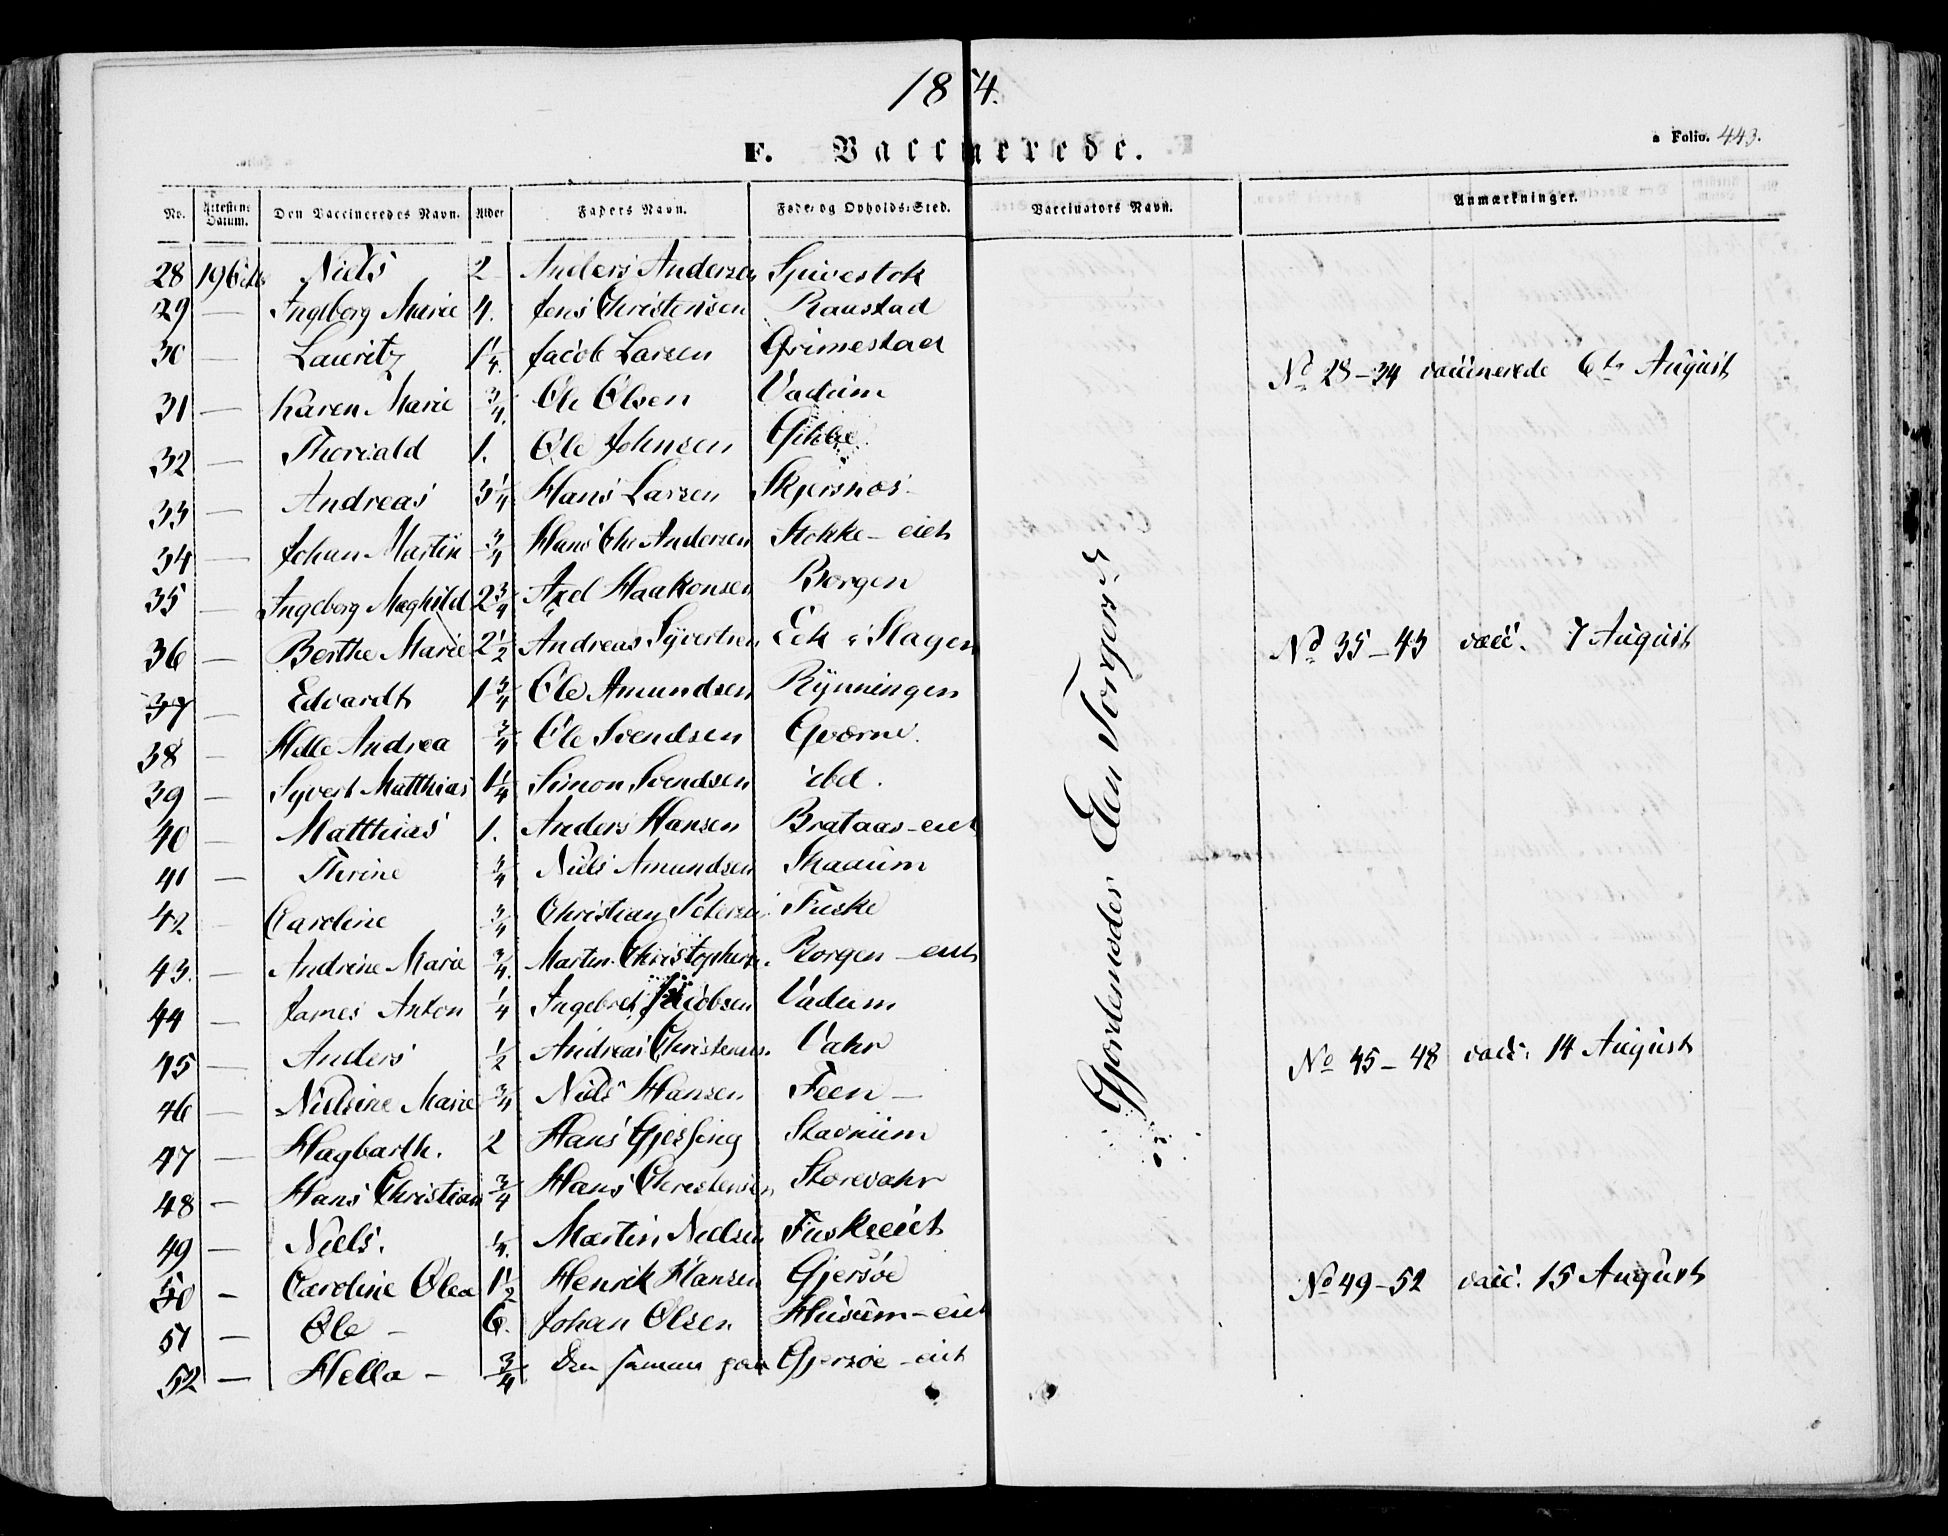 1854.
F. Vaccinerede.
a Folio. 443.
No. Attestens Datum. Den Vaccineredes Navn. Alder Faders Navn. Føde- og Opholds-Sted. Vaccinators Navn. Anmærkninger.
28 Niels 2 Anders Andersen Spirestok
29 — Ingeborg Marie 4. Jens Christensen Raustad
30 — Lauritz 1 1/4. Jacob Larsen Grimestad
No 28-34 vaccinerede 6te August
31 — Karen Marie 3/4. Ole Olsen Vadum
32 — Thorvald 1. Ole Johnsen
33 — Andreas 3 1/4 Hans Larsen Skjersnøs
34 — Johan Martin 3/4 Hans Chr Andersen Stokke-eiet
35 — Ingeborg Maghild 2 3/4 Axel Haakonsen Borgen
36 — Berthe Marie 2 1/2 Andreas Syvertsen Eek i Slagen
No 35-43 vacc. 7 August
37 — Edvardt 1 3/4 Ole Amundsen Rynningen
38 — Helle Andrea 3/4 Ole Svendsen Qværne
39 — Syvert Matthias 1 1/4 Simon Svendsen ibd.
40 — Matthias 1. Anders Hansen Brataas-eiet
41 — Therine 3/4 Niels Amundsen Skaaum
42 — Caroline 3/4 Christian Petersen Fuske
43. — Andrine Marie 3/4. Martin Christophers. Borgen-eiet
44 — James Anton 1/4 Ingebret Jacobsen Vadum
45 — Anders 1/2 Andreas Christens. Vahr
No 45-48 vacc. 14 August
46 — Nielsine Marie 3/4 Niels Hansen Feen —
47 — Hagbarth. 2 Hans Gjessing Stavnum
48 — Hans Christian 3/4 Hans Christensen Storevahr
49 — Niels. 1/4. Martin Nielsen Fuskeeiet
50 — Caroline Olea 1 1/2 Henrik Hansen Gjersøe
No 49-52 vacc. 15 August
51 — Ole — 6. Johan Olsen Husum-eiet
52 — Hella — 3/4 Den samme paa Gjersøe-eiet
Gjordemoder Elen Torgers d.